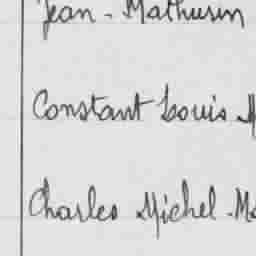 Jean-Mathurin
Constant Louis
Charles Michel-